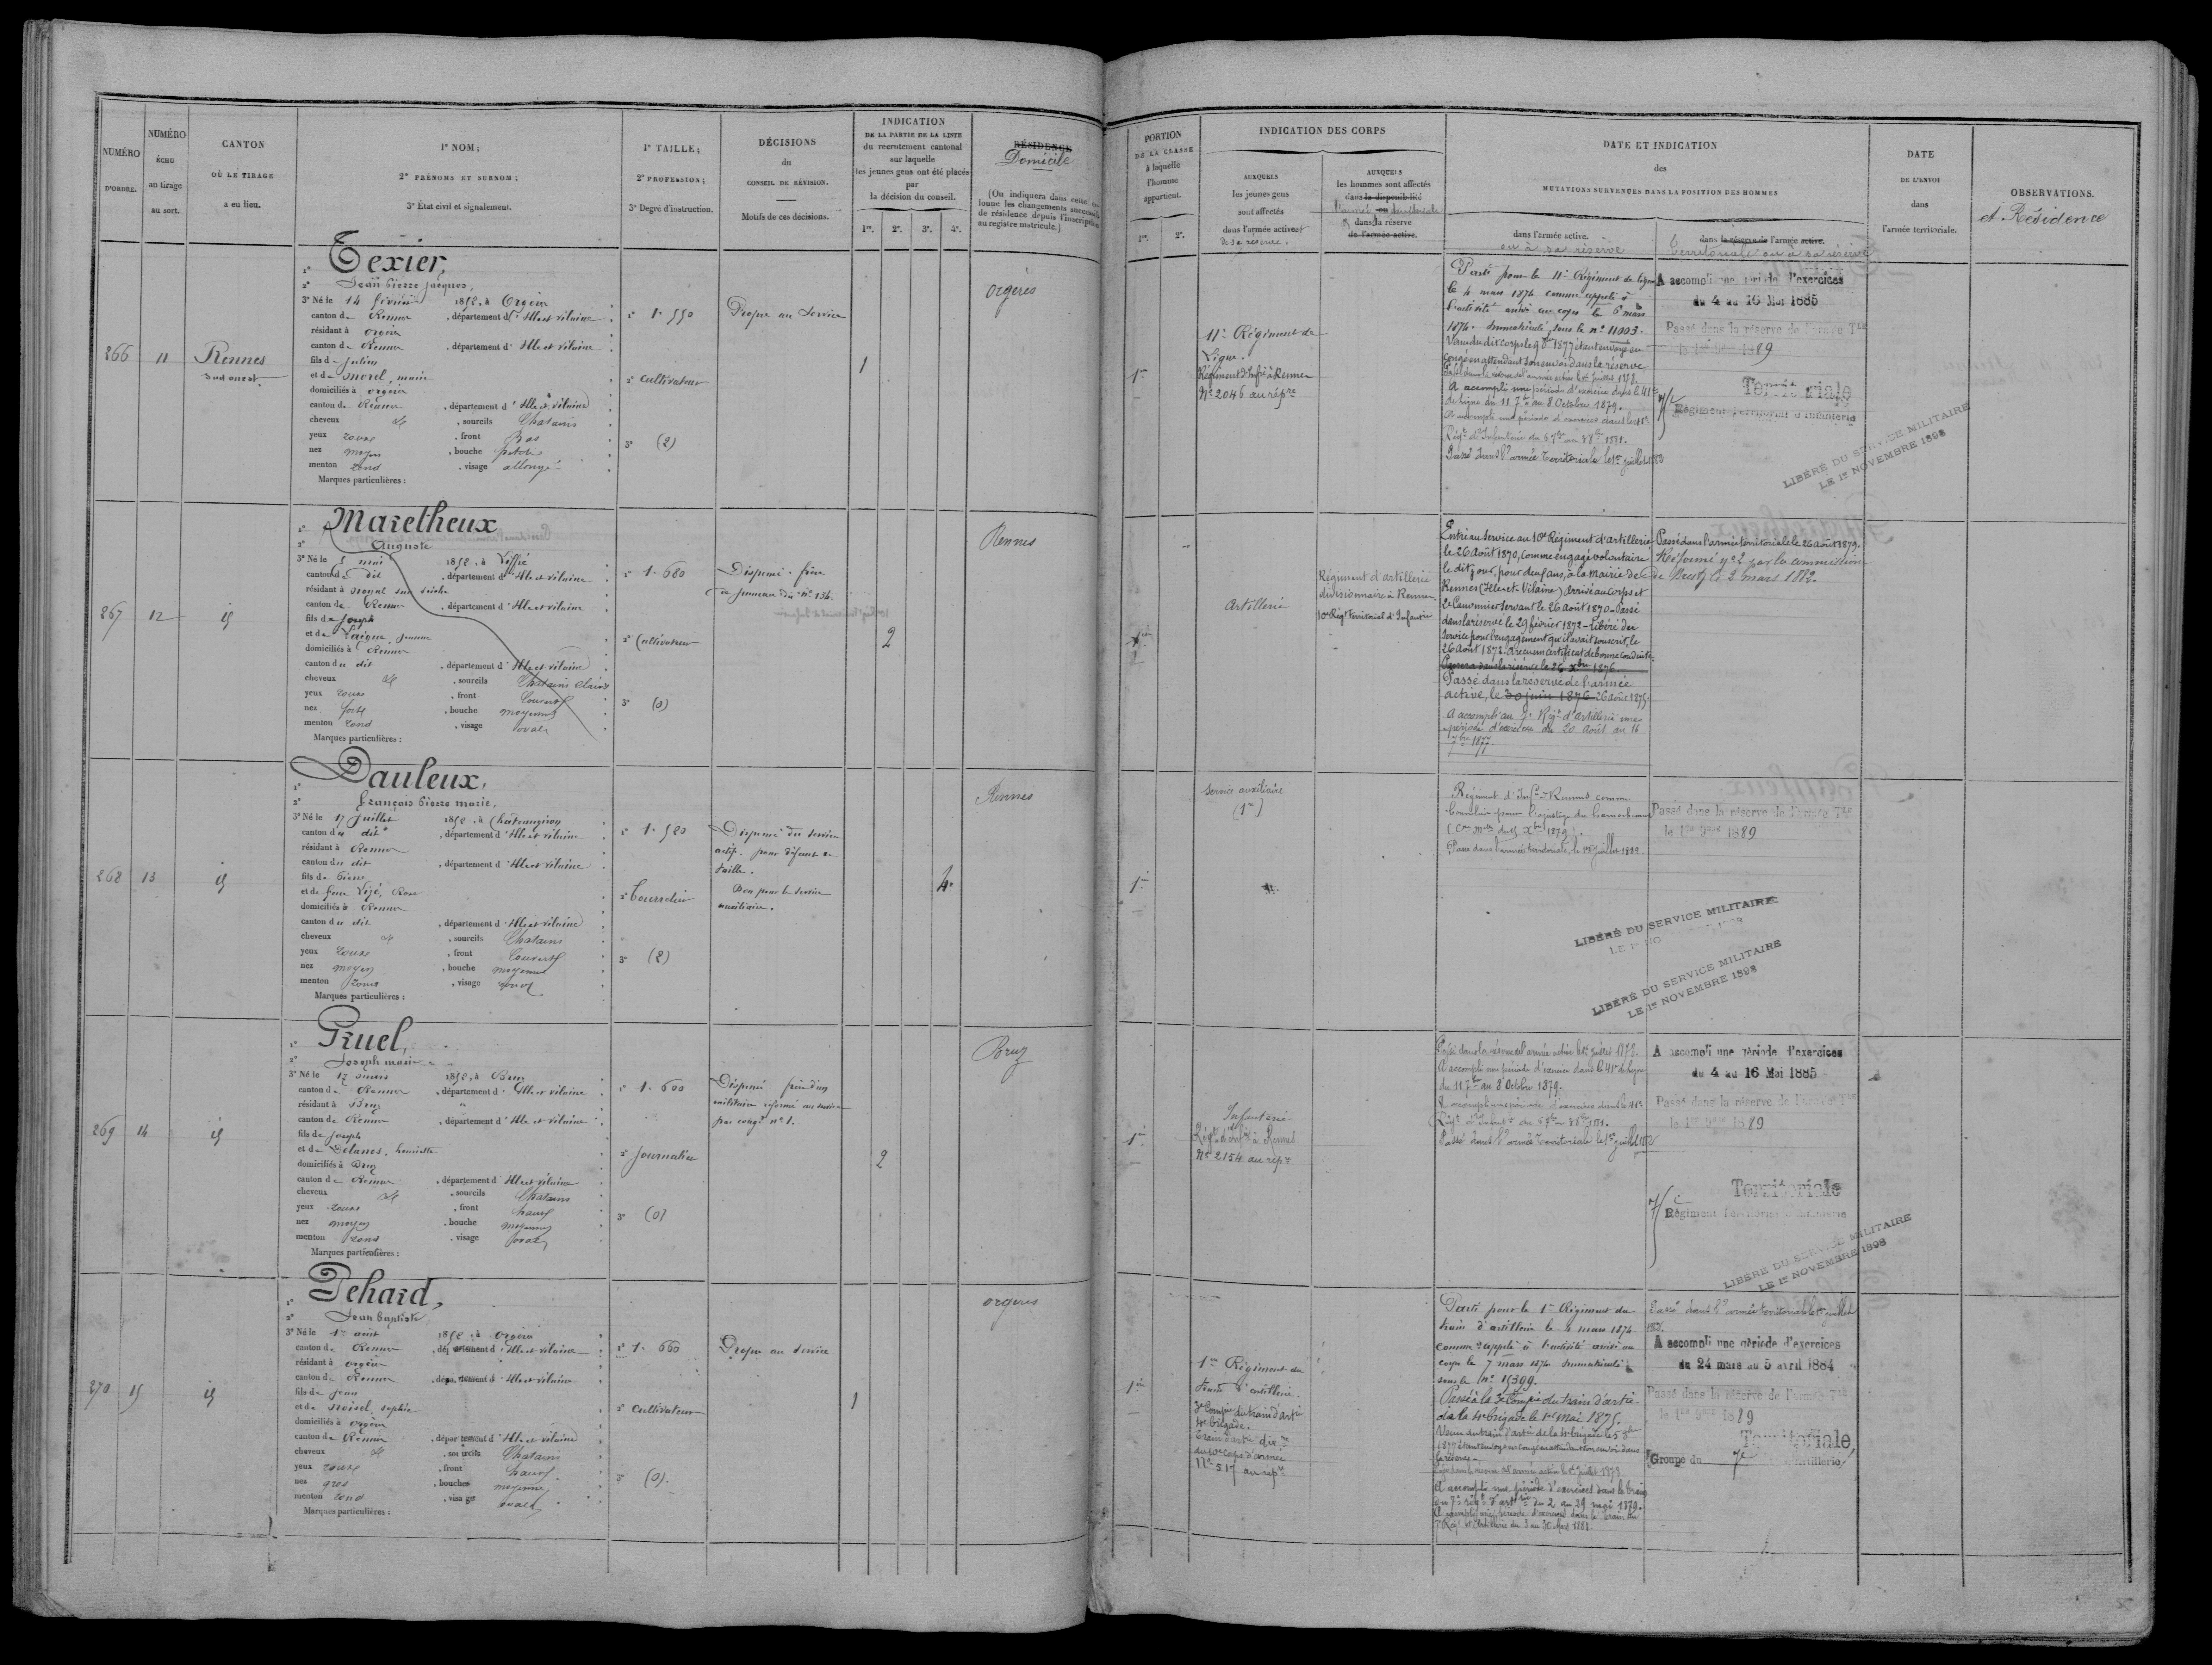 NUMÉRO D'ORDRE.
NUMÉRO ÉCHU au tirage au sort.
CANTON OÙ LE TIRAGE a eu lieu.
1º NOM;
2º PRÉNOMS ET SURNOM;
3º État civil et signalement.
1º TAILLE;
2º PROFESSION;
3º Degré d'instruction.
DÉCISIONS du CONSEIL DE RÉVISION.
Motifs de ces décisions.
INDICATION
DE LA PARTIE DE LA LISTE
du recrutement cantonal
sur laquelle
les jeunes gens ont été placés
par
la décision du conseil.
1re. 2e. 3e. 4e.
RÉSIDENCE
Domicile
(On indiquera dans cette
lonne les changements
de résidence depuis l'inscription
au registre matricule.)
266
11
Rennes
sud ouest.
1º Texier,
2º Jean Pierre Jacques,
3º Né le 14 février 1852, à Orgères
canton de Rennes, département d'Ille et Vilaine
résidant à Orgères
canton de Rennes, département d'Ille et Vilaine
fils de Julien
et de Morel, marie
domiciliés à Orgères
canton de Rennes, département d'Ille et Vilaine
cheveux et, sourcils Chatains
yeux roux, front Bas
nez moyen, bouche petite
menton rond, visage allongé
Marques particulières :
1º 1.550
2º Cultivateur
3º (2)
Propre au Service
1
Orgères
267
12
id
1º Maretheux
2º Auguste
3º Né le mai 1852, à Liffré
canton du dit, département d'Ille et Vilaine
résidant à Noyal sur
canton de Rennes, département d'Ille et Vilaine
fils de Joseph
et de Jeanne
domiciliés à Rennes
canton du dit, département d'Ille et Vilaine
cheveux et, sourcils Chatains clairs
yeux roux, front Couvert
nez fort, bouche moyenne
menton rond, visage ovale
Marques particulières :
1º 1.680
2º Cultivateur
3º (0)
Dispensé. frère
du nº 134.
2
Rennes
268
13
id
1º Dauleux,
2º François Pierre Marie,
3º Né le 17 Juillet 1852, à Châteaugiron
canton du dit, département d'Ille et Vilaine
résidant à Rennes
canton du dit, département d'Ille et Vilaine
fils de Pierre
et de feue Rose
domiciliés à Rennes
canton du dit, département d'Ille et Vilaine
cheveux et, sourcils Chatains
yeux roux, front Couvert
nez moyen, bouche moyenne
menton rond, visage rond
Marques particulières :
1º 1.520
2º Bourrelier
3º (2)
Dispensé du service
actif. pour défaut de
taille.
Bon pour le service
auxiliaire.
4e
Rennes
269
14
id
1º Pruel,
2º Joseph Marie
3º Né le 17 1852, à Bruz
canton de Rennes, département d'Ille et Vilaine
résidant à Bruz
canton de Rennes, département d'Ille et Vilaine
fils de Joseph
et de Delanos, henriette
domiciliés à Bruz
canton de Rennes, département d'Ille et Vilaine
cheveux et, sourcils Chatains
yeux roux, front haut
nez moyen, bouche moyenne
menton rond, visage ovale
Marques particulières :
1º 1.600
2º Journalier
3º (0)
Dispensé. frère d'un
militaire réformé au service
par congé nº 1.
2
Bruz
270
15
id
1º Pehard,
2º Jean Baptiste
3º Né le 1er août 1852, à Orgères
canton de Rennes, département d'Ille et Vilaine
résidant à Orgères
canton de Rennes, département d'Ille et Vilaine
fils de Jean
et de Noisel, Sophie
domiciliés à Orgères
canton de Rennes, département d'Ille et Vilaine
cheveux et, sourcils Chatains
yeux roux, front haut
nez gros, bouche moyenne
menton rond, visage ovale
Marques particulières :
1º 1.660
2º Cultivateur
3º (0).
Propre au Service
1
Orgères
PORTION
DE LA CLASSE
à laquelle
l'homme
appartient.
1re. 2e.
INDICATION DES CORPS
AUXQUELS
les jeunes gens
sont affectés
dans l'armée active et
de sa réserve.
AUXQUELS
les hommes sont affectés
dans la disponibilité
l'armée territoriale
dans la réserve
de l'armée active.
DATE ET INDICATION
des
MUTATIONS SURVENUES DANS LA POSITION DES HOMMES
dans l'armée active.
ou à sa réserve
dans la réserve de l'armée active.
territoriale ou à sa réserve
DATE
DE L'ENVOI
dans
l'armée territoriale.
OBSERVATIONS.
et Résidence
1re
11e Régiment de
Ligne.
Régiment d'Infie à Rennes
Nº 2046 au répre
Parti pour le 11e Régiment de ligne
le 4 mars 1874 comme appelé à
l'activité arrivé au corps le 6 mars
1874. Immatriculé sous le nº 11003.
Venu du dit corps le 9 8bre 1877 étant envoyé en
congé en attendant son envoi dans la réserve
Passé dans la réserve de l'armée active le 1er juillet 1878.
A accompli une période d'exercice dans le 41e
de ligne du 11 7bre au 8 Octobre 1879.
A accompli une période d'exercices dans le 41e
Régt d'Infanterie du
Passé dans l'armée territoriale le 1er juillet 1883
A accompli une période d'exercices
du 4 au 16 Mai 1885
Passé dans la réserve de l'armée Tle
le 1er 9bre 1889
Territoriale
Régiment territorial d'Infanterie
LIBÉRÉ DU SERVICE MILITAIRE
LE 1er NOVEMBRE 1898
Artillerie
Régiment d'artillerie
divisionnaire à Rennes
10e Régt territorial d'Infanterie
Entré au service au 10e Régiment d'artillerie
le 26 Août 1870, comme engagé volontaire
le dit jour, pour deux ans, à la mairie de
Rennes (Ille-et-Vilaine) Arrivé au corps et
2e Canonnier Servant le 26 Août 1870 - Passé
dans la réserve le 29 février 1872 - Libéré du
service pour l'engagement qu'il avait souscrit, le
26 Août 1872. A reçu un certificat de bonne conduite.
Passera dans la réserve le 26 Xbre 1876
Passé dans la réserve de l'armée
active, le 30 juin 1876 26 Août 1875
A accompli au 7e Régt d'artillerie une
période d'exercices du 20 Août au 16
7bre 1877.
Passé dans l'armée territoriale le 26 août 1879.
Réformé nº 2 par la commission
de Brest le 2 mars 1882.
1re
Service auxiliaire
(1re)
Régiment d'Infie à Rennes comme
Bourrelier pour l'ajustage du harnachement
Xbre 1879).
Passé dans l'armée territoriale, le 1er juillet 1882.
Passé dans la réserve de l'armée Tle
le 1er 9bre 1889
LIBÉRÉ DU SERVICE MILITAIRE
LIBÉRÉ DU SERVICE MILITAIRE
LE 1er NOVEMBRE 1898
1re
Infanterie
Régt d'Infie à Rennes
Nº 2154 au répre
Passé dans la réserve de l'armée active le 1er juillet 1878.
A accompli une période d'exercice dans le 41e de ligne
du 11 7bre au 8 Octobre 1879.
A accompli une période d'exercices dans le 41e
Passé dans l'armée territoriale le 1er juillet 1882
A accompli une période d'exercices
du 4 au 16 Mai 1885
Passé dans la réserve de l'armée Tle
le 1er 9bre 1889
Territoriale
Régiment territorial d'Infanterie
LIBÉRÉ DU SERVICE MILITAIRE
LE 1er NOVEMBRE 1898
1re
1er Régiment du
train d'artillerie.
3e Compie du train d'artie
4e brigade.
Train d'artie divre
du 10e corps d'armée
Nº 517 au répre
Parti pour le 1er Régiment du
train d'artillerie le 4 mars 1874
comme appelé à l'activité arrivé au
corps le 7 mars 1874 Immatriculé
sous le nº 15399.
Passé à la 3e Compie du train d'artie
de la 4e brigade le 1er Mai 1875.
Venu du train d'artie de la 4e brigade le 5 8bre
1877 étant envoyé en congé en attendant son envoi dans
la réserve.
Passé dans la réserve de l'armée active le 1er juillet 1878
A accompli une période d'exercices dans le train
du 7e régt d'artie du 2 au 29 mai 1879.
A accompli une période d'exercices dans le train du
7e Régt d'Artillerie du 3 au 30 Mars 1881
Passé dans l'armée territoriale le 1er juillet
A accompli une période d'exercices
du 24 mars au 5 avril 1884
Passé dans la réserve de l'armée Tle
le 1er 9bre 1889
Territoriale
Groupe du 7e d'artillerie